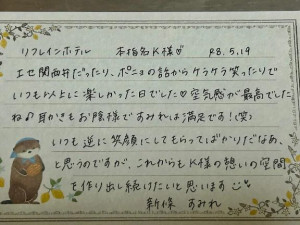 リフレインホテル 本指名K様♡ R8.5.19
エセ関西弁だったり、ポニョの話からケラケラ笑ったりで
いつも以上に楽しかった日でした♡空気感が最高でした
ね♪耳かきもお陰様ですみれは満足です!(笑)
いつも逆に笑顔にしてもらってばかりだなあ、
と思うのですが、これからもK様の憩いの空間
を作り出し続けたいと思います
新條 すみれ